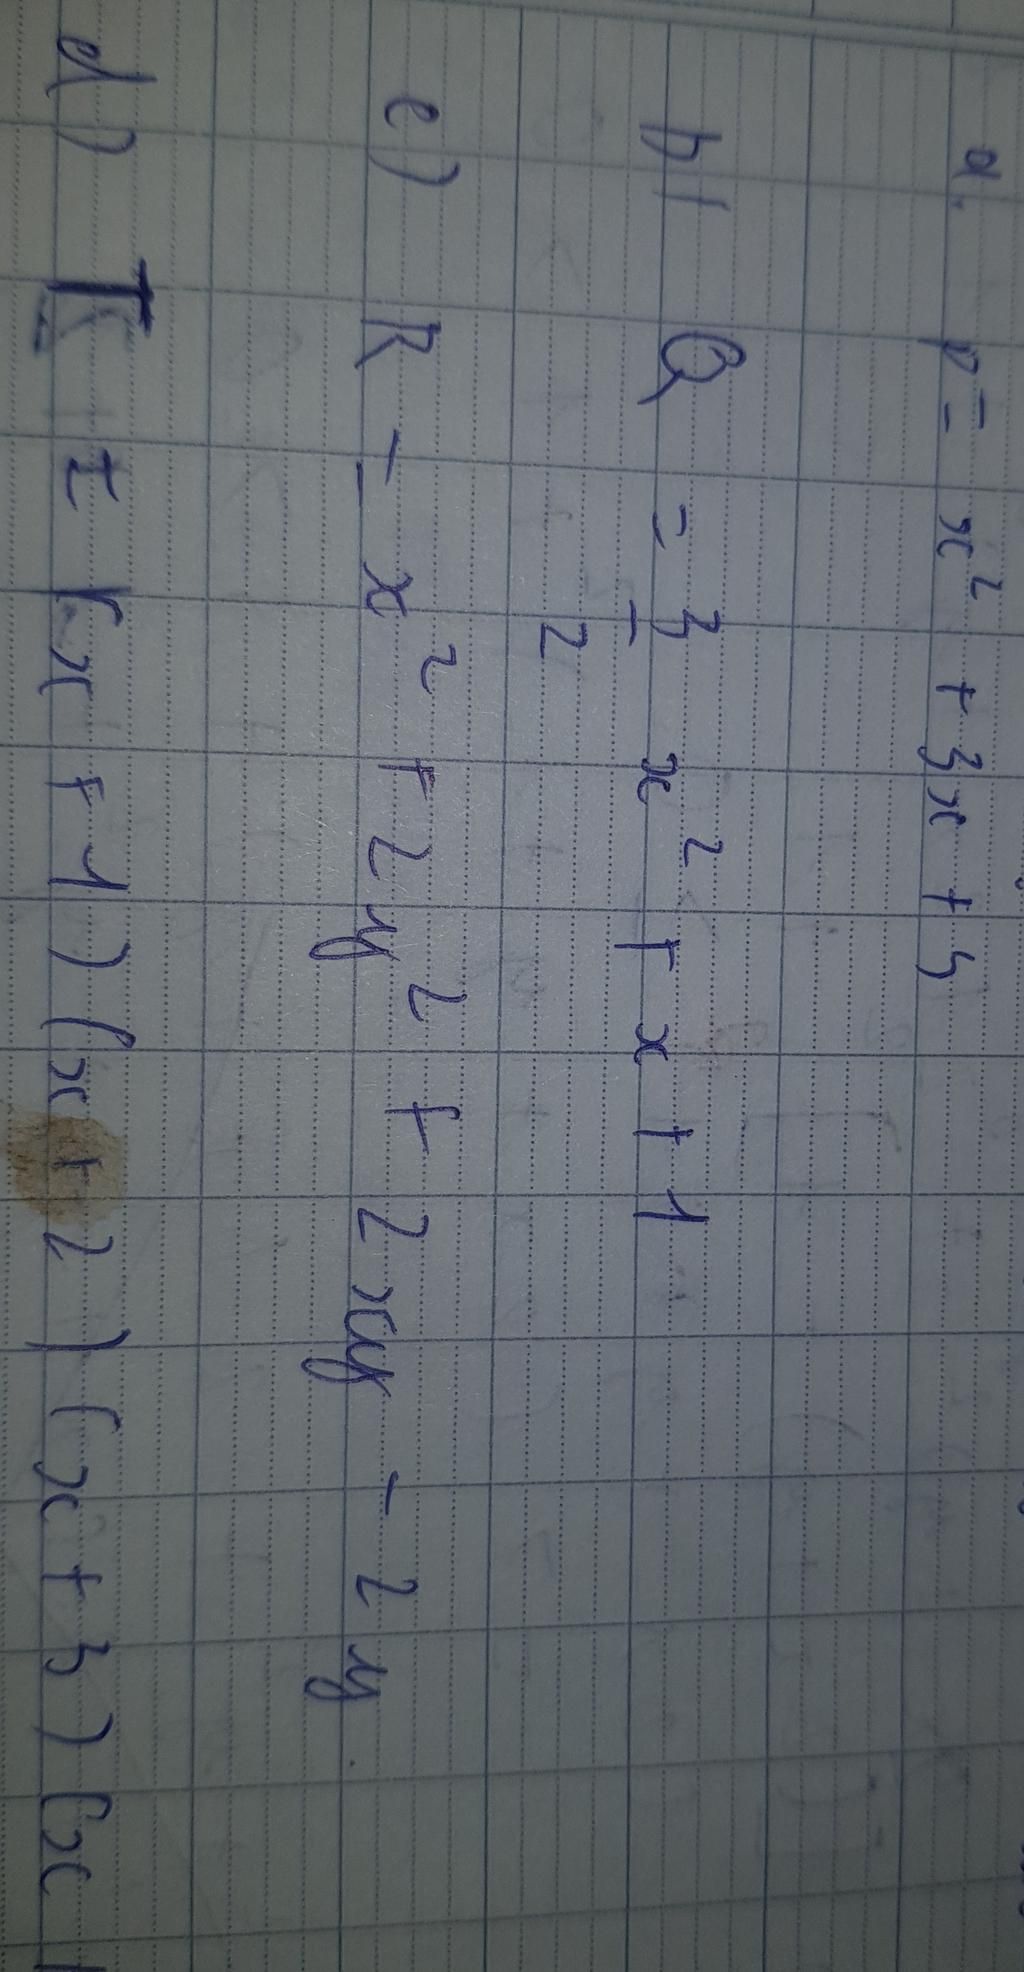 a. P = x² + 3x + 5
b) Q = 3/2 x² + x + 1
c) R = x² + 2y² + 2xy - 2y
d) I = (x + 1)(x + 2)(x + 3)(x